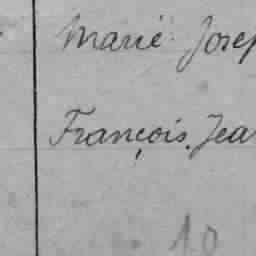 Marie Josep
François Jea
10